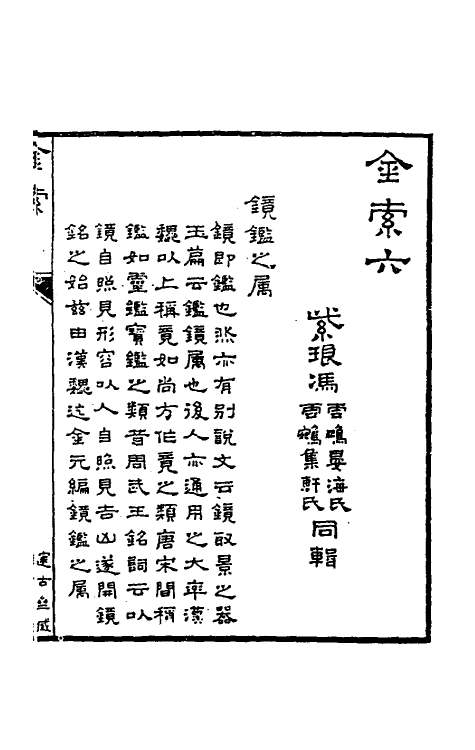 金索六
紫琅馮雲鵬晏海氏雲鵷集軒氏同輯
鏡鑑之属
鏡即鑑也然亦有别說文云鏡取景之器
玉篇云鑑鏡属也後人亦通用之大率漢
魏以上稱竟如尚方作竟之類唐宋間稱
鑑如靈鑑寶鑑之類昔周武王銘詞云以
鏡自照見形容以人自照見吉凶遂開鏡
銘之始兹由漢魏迄金元編鏡鑑之属
金索